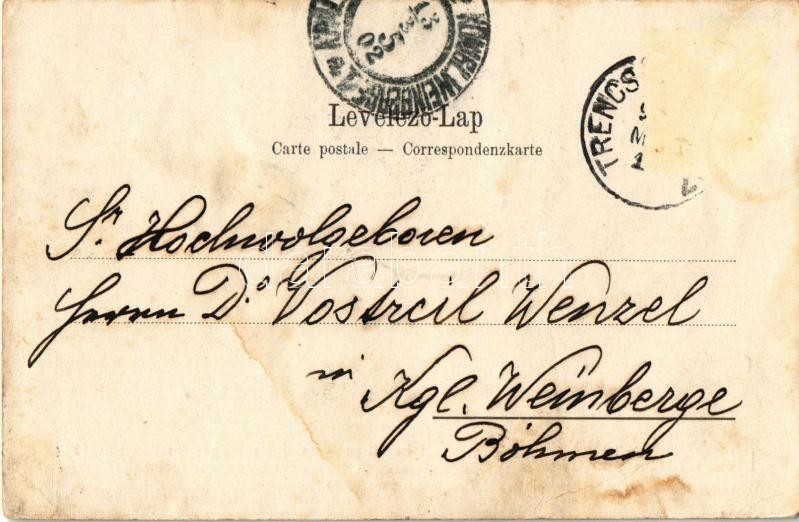 13
5
02
KÖNIGL. WEINBERGE 1
TRENCS
Levelező-Lap
Carte postale — Correspondenzkarte
Sr. Hochwolgeboren
Herrn Dr. Vostrcil Wenzel
in Kgl. Weinberge
Böhmen
darabanth